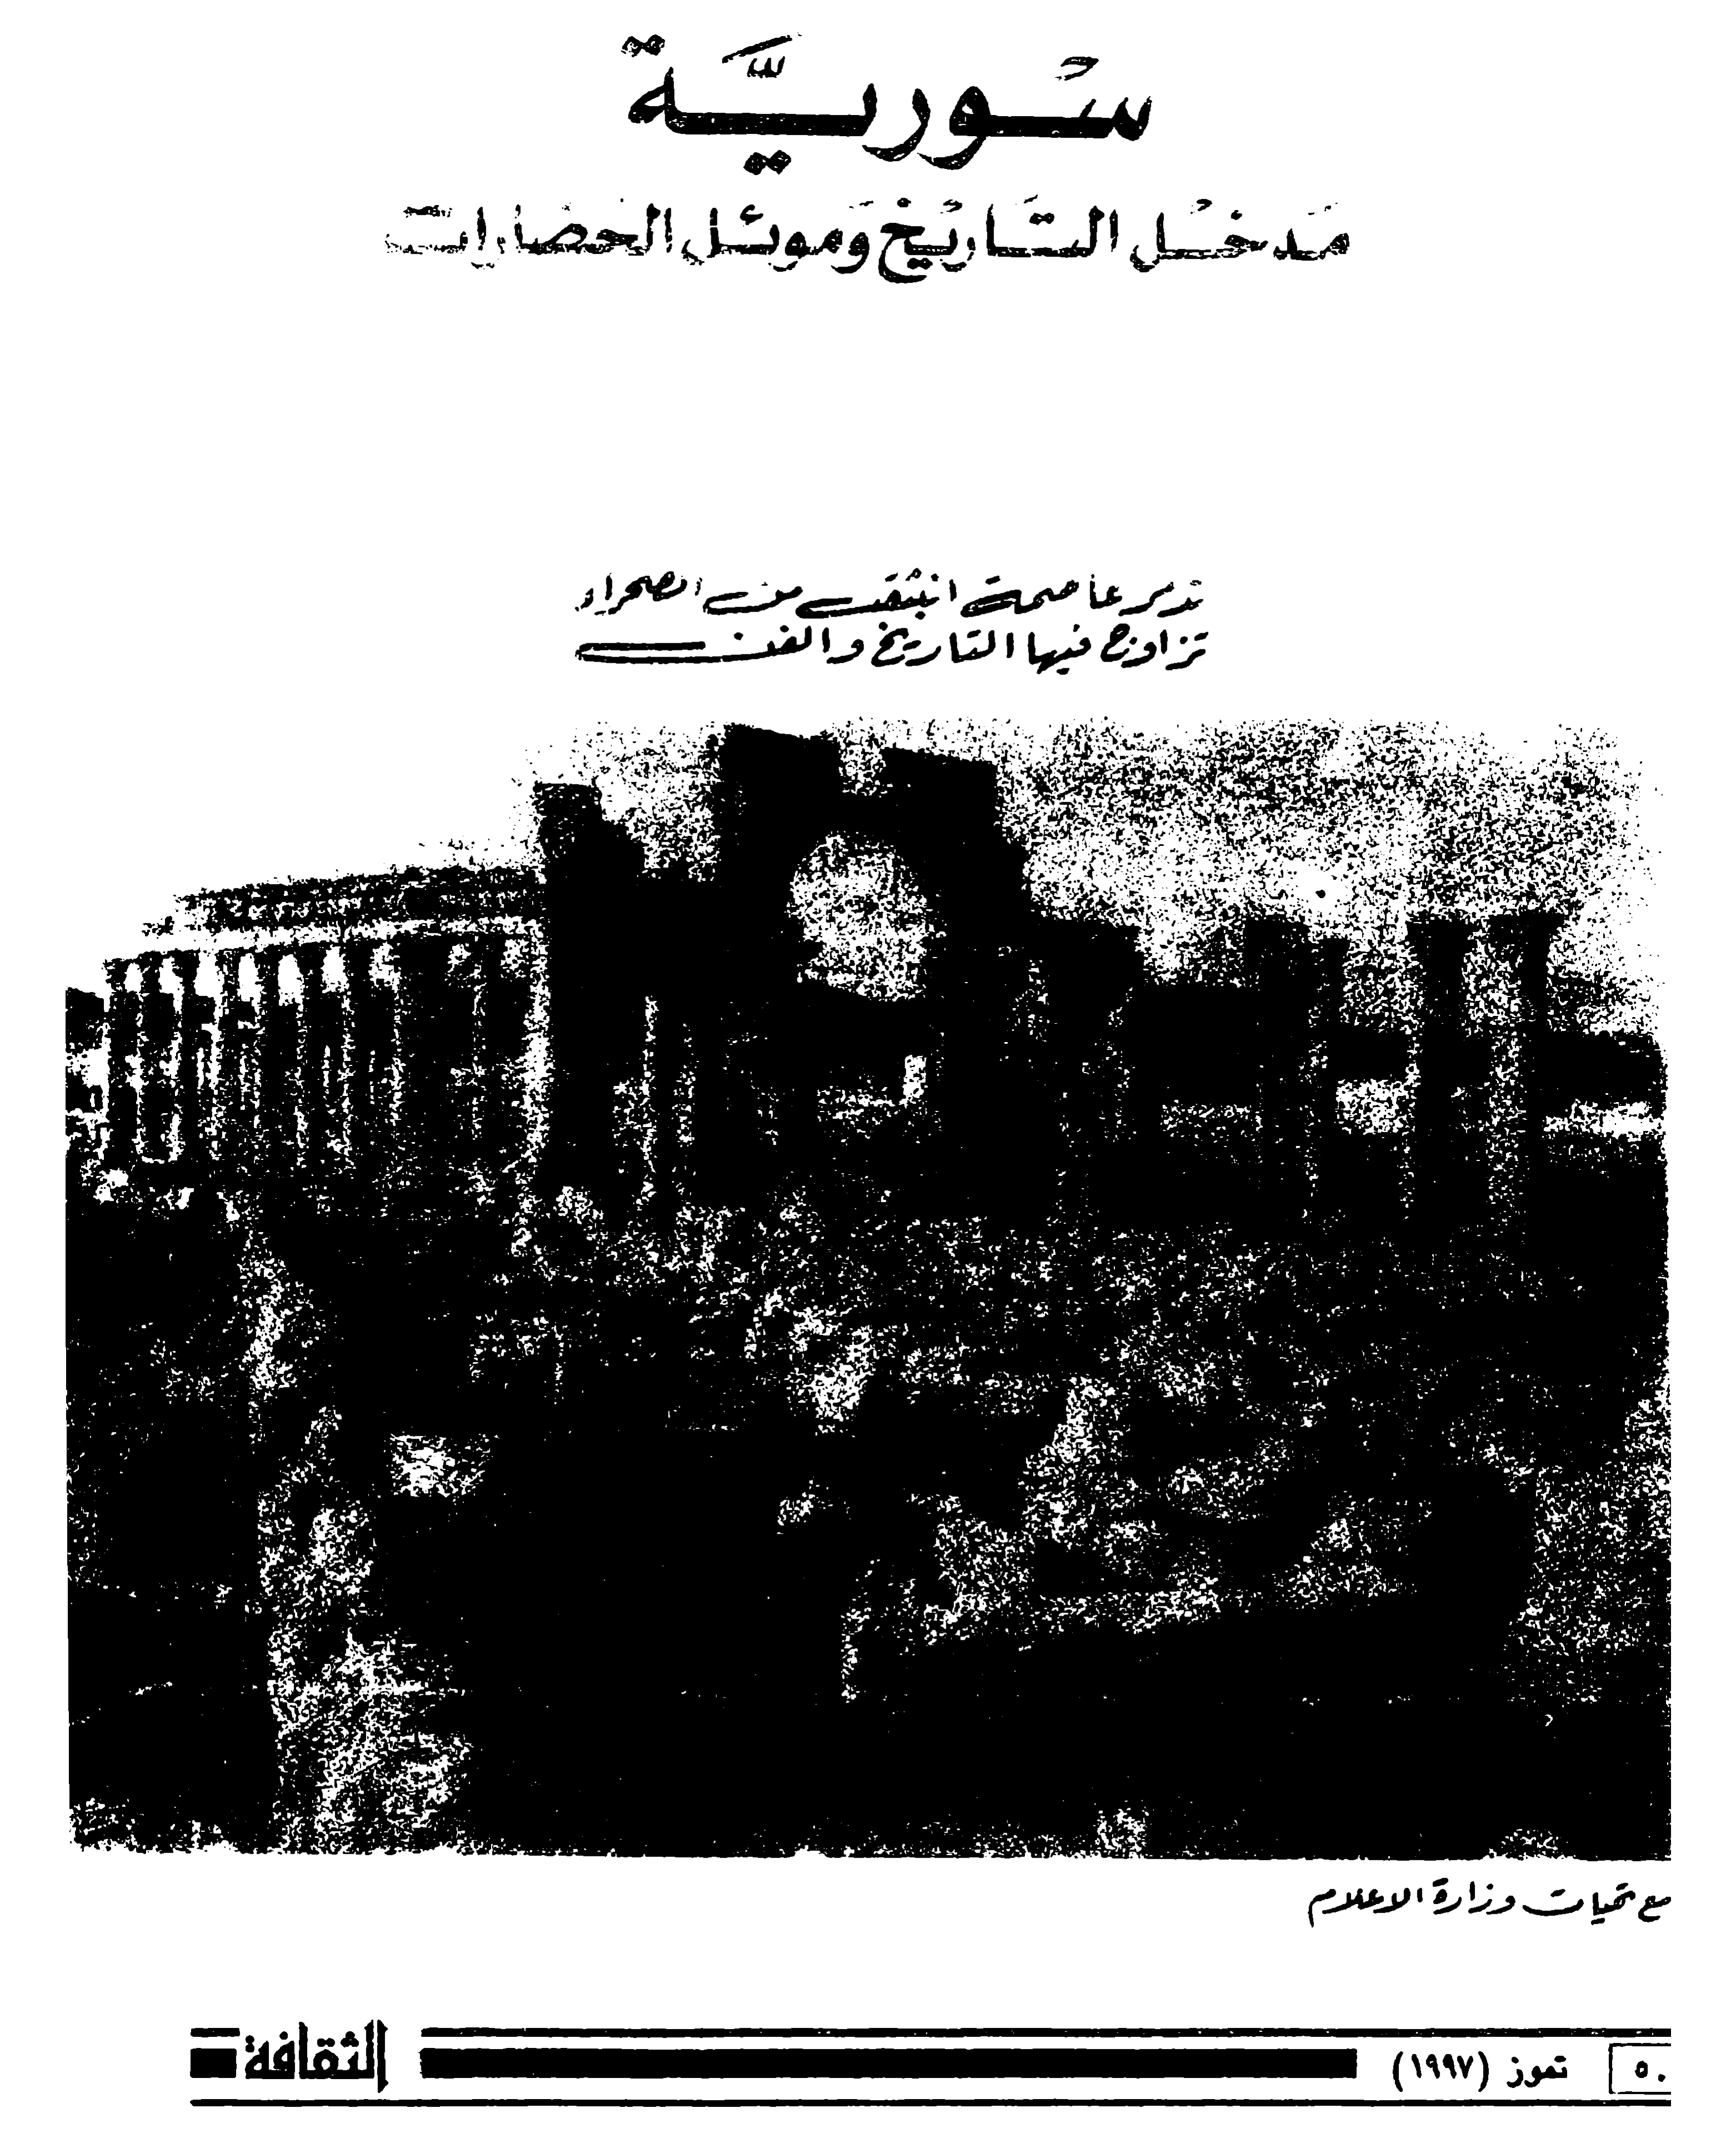 سُوريَّة
مَدخَل التَّاريْخ وَموئل الحَضارات
تدمر عاصمة انبثقت من الصحراء
تزاوج فيها التاريخ والفن
مع تحيات وزارة الاعلام
٥٠ تموز (١٩٩٧) الثقافة